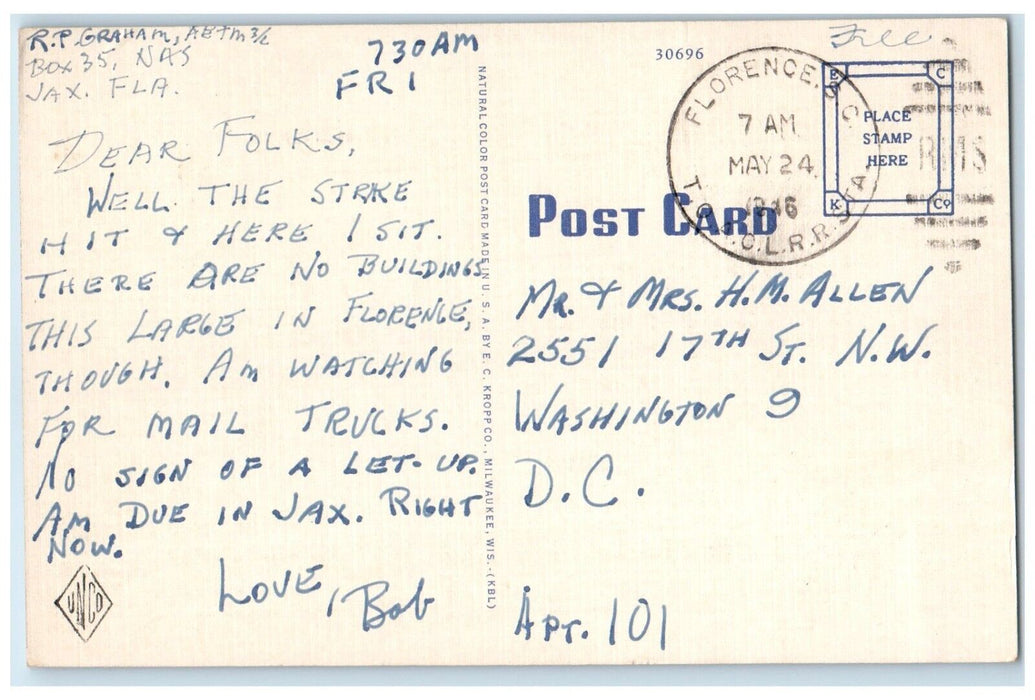 R.P. GRAHAM, AETM 3/c
BOX 35, NAS
JAX. FLA.
730AM
FRI
DEAR FOLKS,
WELL THE STRIKE
HIT & HERE I SIT.
THERE ARE NO BUILDINGS
THIS LARGE IN FLORENCE,
THOUGH. AM WATCHING
FOR MAIL TRUCKS.
NO SIGN OF A LET-UP.
AM DUE IN JAX. RIGHT
NOW.
LOVE,
Bob
UNCO
NATURAL COLOR POST CARD MADE IN U. S. A. BY E. C. KROPP CO., MILWAUKEE, WIS.-(KBL)
30696
Free
FLORENCE, S.C.
7 AM
MAY 24
1946
A.C.L.R.R. STA
E C
PLACE
STAMP
HERE
K Co
RMS
POST CARD
MR. & MRS. H.M. ALLEN
2551 17TH ST. N.W.
WASHINGTON 9
D.C.
APT. 101